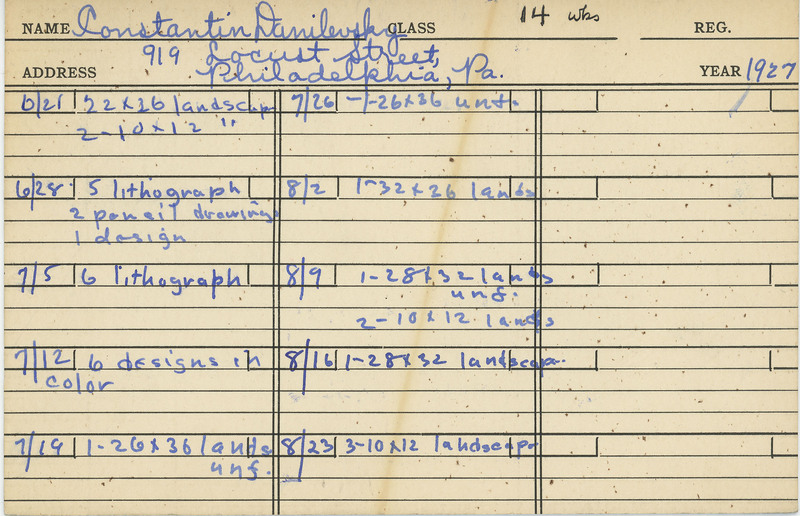 NAME Constantin Danilevsky CLASS 14 wks REG.
919 Locust Street,
ADDRESS Philadelphia, Pa. YEAR 1927
6/21 22x26 landscap
2-10x12 "
6/28 5 lithograph
2 pencil drawings
1 design
7/5 6 lithograph
7/12 6 designs in
color
7/19 1-26x36 lands
unf.
7/26 -1-26x36 unf.
8/2 1-32x26 lands
8/9 1-28x32 lands
unf.
2-10x12 lands
8/16 1-28x32 landscap.
8/23 3-10x12 landscap